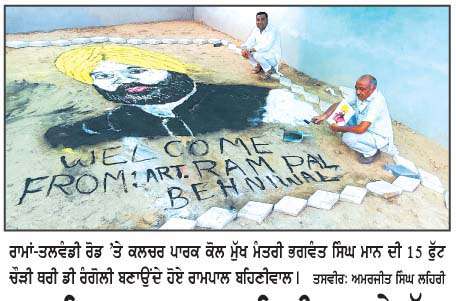 WELCOME
FROM: ART. RAM PAL
BEHNIWAL
ਰਾਮਾਂ-ਤਲਵੰਡੀ ਰੋਡ ’ਤੇ ਕਲਚਰ ਪਾਰਕ ਕੋਲ ਮੁੱਖ ਮੰਤਰੀ ਭਗਵੰਤ ਸਿੰਘ ਮਾਨ ਦੀ 15 ਫੁੱਟ
ਚੌੜੀ ਥਰੀ ਡੀ ਰੰਗੋਲੀ ਬਣਾਉਂਦੇ ਹੋਏ ਰਾਮਪਾਲ ਬਹਿਣੀਵਾਲ। ਤਸਵੀਰ: ਅਮਰਜੀਤ ਸਿੰਘ ਲਹਿਰੀ